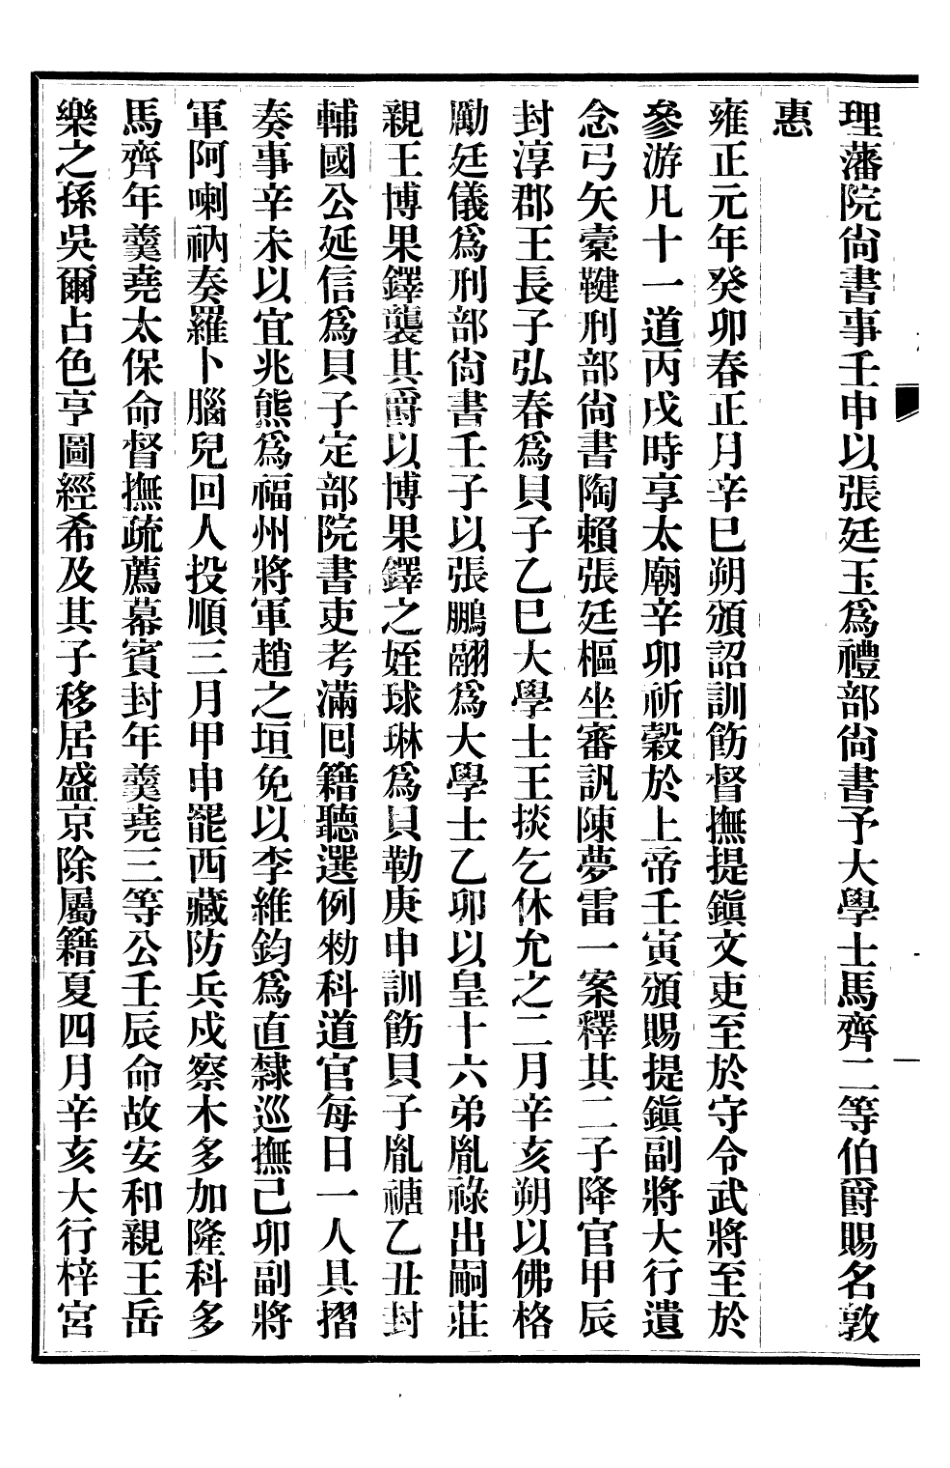 理藩院尙書事壬申以張廷玉爲禮部尙書予大學士馬齊二等伯爵賜名敦
惠
雍正元年癸卯春正月辛巳朔頒詔訓飭督撫提鎭文吏至於守令武將至於
參游凡十一道丙戌時享太廟辛卯祈穀於上帝壬寅頒賜提鎭副將大行遺
念弓矢櫜鞬刑部尙書陶賴張廷樞坐審訊陳夢雷一案釋其二子降官甲辰
封淳郡王長子弘春爲貝子乙巳大學士王掞乞休允之二月辛亥朔以佛格
勵廷儀爲刑部尙書壬子以張鵬翮爲大學士乙卯以皇十六弟胤祿出嗣莊
親王博果鐸襲其爵以博果鐸之姪球琳爲貝勒庚申訓飭貝子胤禟乙丑封
輔國公延信爲貝子定部院書吏考滿回籍聽選例勑科道官每日一人具摺
奏事辛未以宜兆熊爲福州將軍趙之垣免以李維鈞爲直隸巡撫己卯副將
軍阿喇衲奏羅卜腦兒回人投順三月甲申罷西藏防兵戍察木多加隆科多
馬齊年羹堯太保命督撫疏薦幕賓封年羹堯三等公壬辰命故安和親王岳
樂之孫吳爾占色亨圖經希及其子移居盛京除屬籍夏四月辛亥大行梓宮